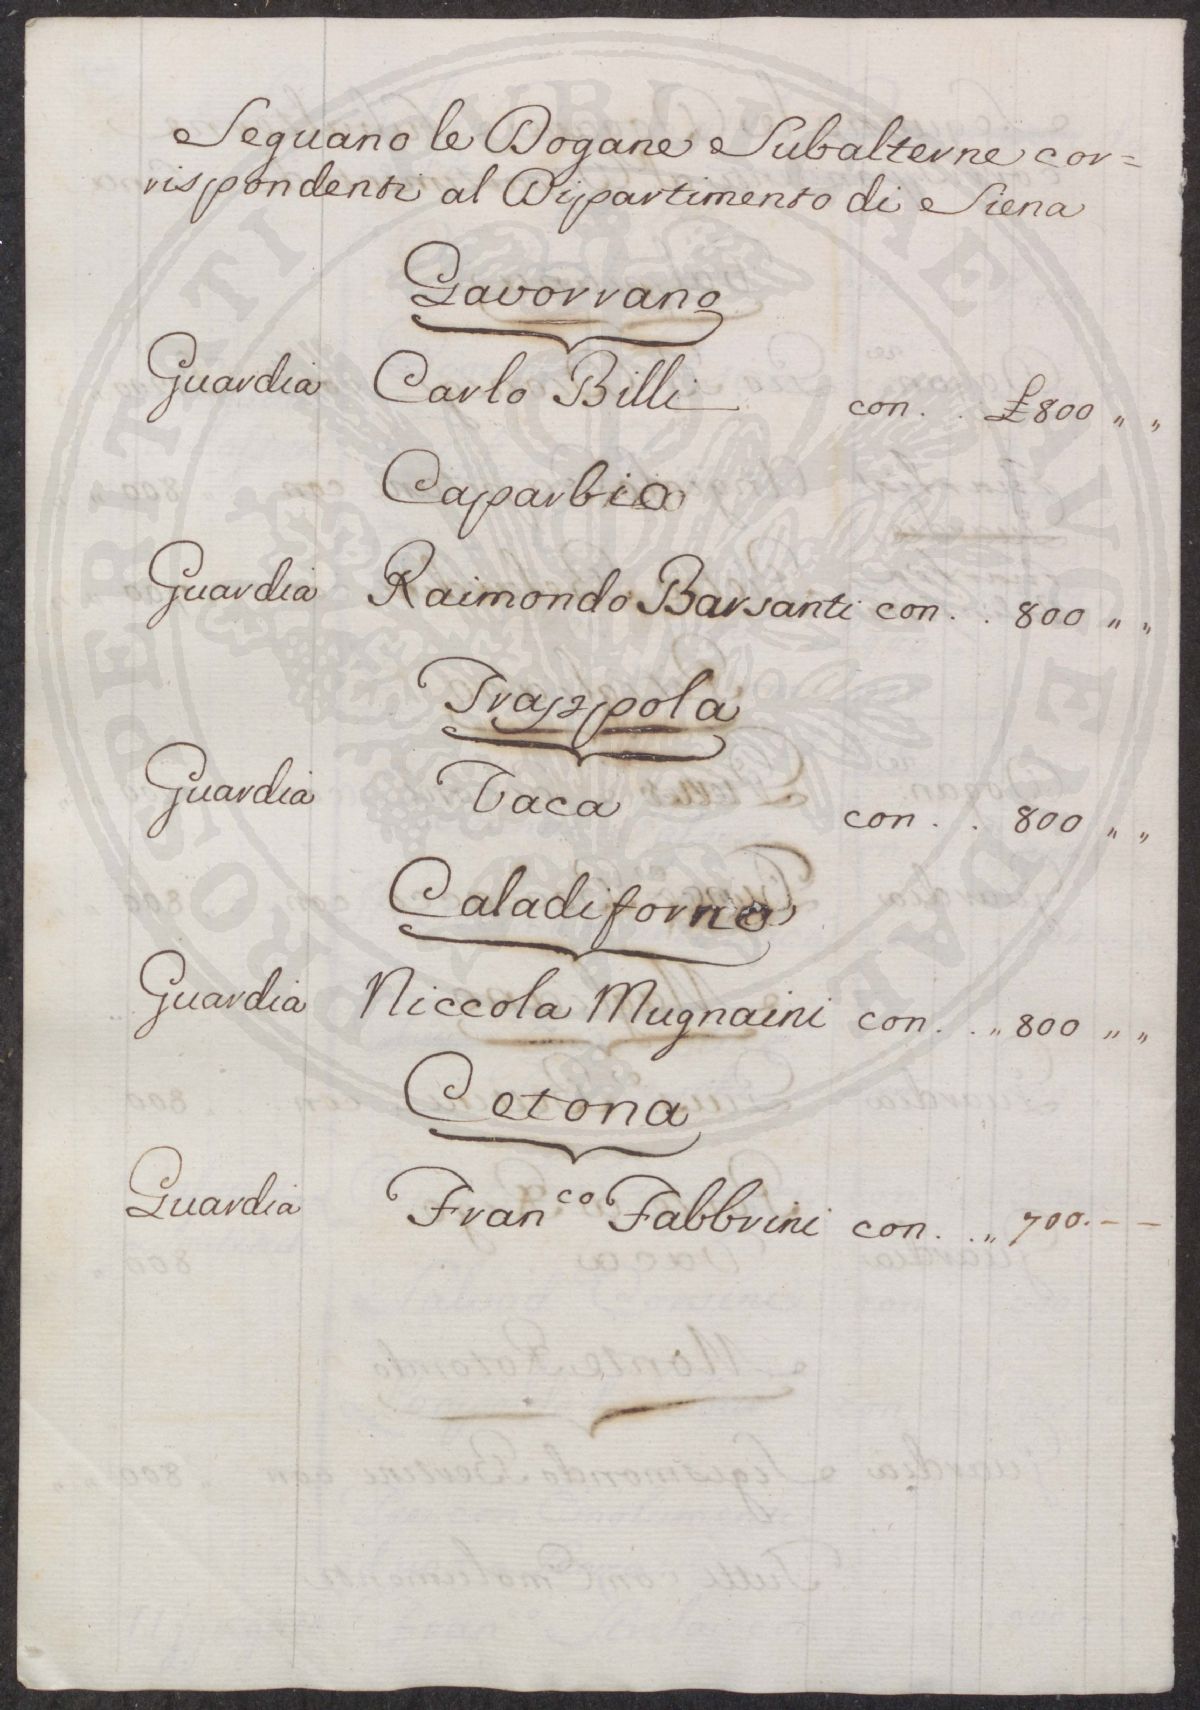 Seguano le Dogane Subalterne cor=
rispondenti al Dipartimento di Siena
Gavorrano
Guardia Carlo Billi con . . £ 800 „ „
Caparbio
Guardia Raimondo Barsanti con . . 800 „ „
Trappola
Guardia Vaca con . . 800 „ „
Caladiforno
Guardia Niccola Mugnaini con . . „ 800 „ „
Cetona
Guardia Fran.co Fabbrini con . . „ 700. – –
PROSPERITATI PUBLICAE AUGENDAE